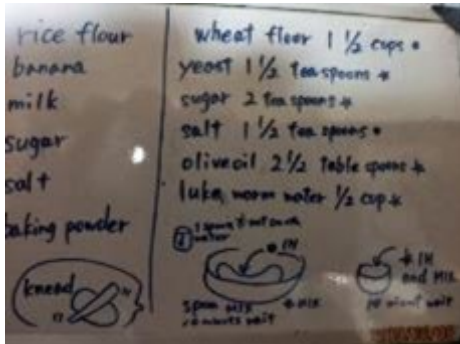 rice flour
banana
milk
sugar
salt
baking powder
knead
wheat floor 1 1/2 cups •
yeast 1 1/2 tea spoons *
sugar 2 tea spoons *
salt 1 1/2 tea spoons •
olive oil 2 1/2 table spoons *
luke worm water 1/2 cup *
water
• IN
spoon MIX
* MIX
wait
* IN
and MIX
10
wait